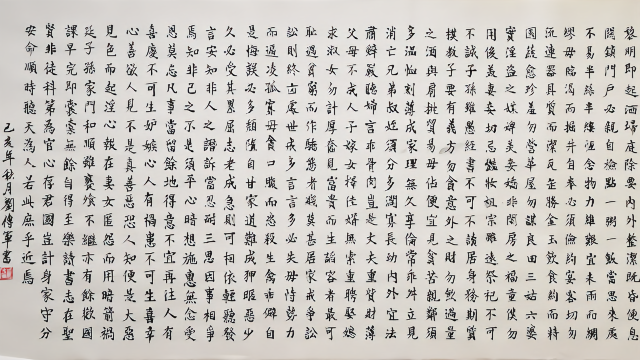 黎明即起洒掃庭除要內外整潔既昏便息
關鎖門戶必親自檢點一粥一飯當思來處
不易半絲半縷恆念物力維艱宜未雨而綢
繆毋臨渴而掘井自奉必須儉約宴客切勿
流連器具質而潔瓦缶勝金玉飲食約而精
園蔬愈珍羞勿營華屋勿謀良田三姑六婆
實淫盜之媒婢美妾嬌非閨房之福童僕勿
用俊美妻妾切忌艷妝祖宗雖遠祭祀不可
不誠子孫雖愚經書不可不讀居身務期質
樸教子要有義方勿貪意外之財勿飲過量
之酒與肩挑貿易毋佔便宜見貧苦親鄰須
多溫恤刻薄成家理無久享倫常乖舛立見
消亡兄弟叔姪須分多潤寡長幼內外宜法
肅辭嚴聽婦言乖骨肉豈是丈夫重貲財薄
父母不成人子嫁女擇佳婿無索重聘娶媳
求淑女勿計厚奩見富貴而生諂容者最可
恥遇貧窮而作驕態者賤莫甚居家戒爭訟
訟則終凶處世戒多言言多必失毋恃勢力
而凌逼孤寡毋貪口腹而恣殺生禽乖僻自
是悔誤必多頹惰自甘家道難成狎昵惡少
久必受其累屈志老成急則可相依輕聽發
言安知非人之譖訴當忍耐三思因事相爭
焉知非己之不是須平心暗想施惠無念受
恩莫忘凡事當留餘地得意不宜再往人有
喜慶不可生妒嫉心人有禍患不可生喜幸
心善欲人見不是真善惡恐人知便是大惡
見色而起淫心報在妻女匿怨而用暗箭禍
延子孫家門和順雖饔飧不繼亦有餘歡國
課早完即囊橐無餘自得至樂讀書志在聖
賢非徒科第為官心存君國豈計身家守分
安命順時聽天為人若此庶乎近焉
己亥年秋月劉傳軍書